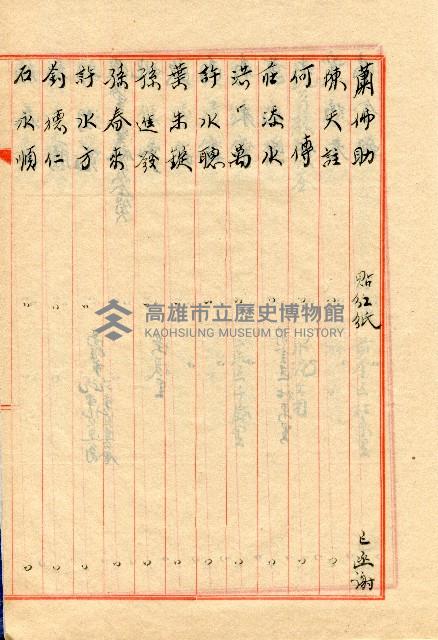 蕭佛助 貼紅紙 已函謝
陳天註 〃 〃
何傳 〃 〃
莊添水 〃 〃
洪萬 〃 〃
許水聰 〃 〃
葉朱錠 〃 〃
孫進發 〃 〃
孫春來 〃 〃
許水方 〃 〃
劉德仁 〃 〃
石永順 〃 〃
高雄市立歷史博物館
KAOHSIUNG MUSEUM OF HISTORY